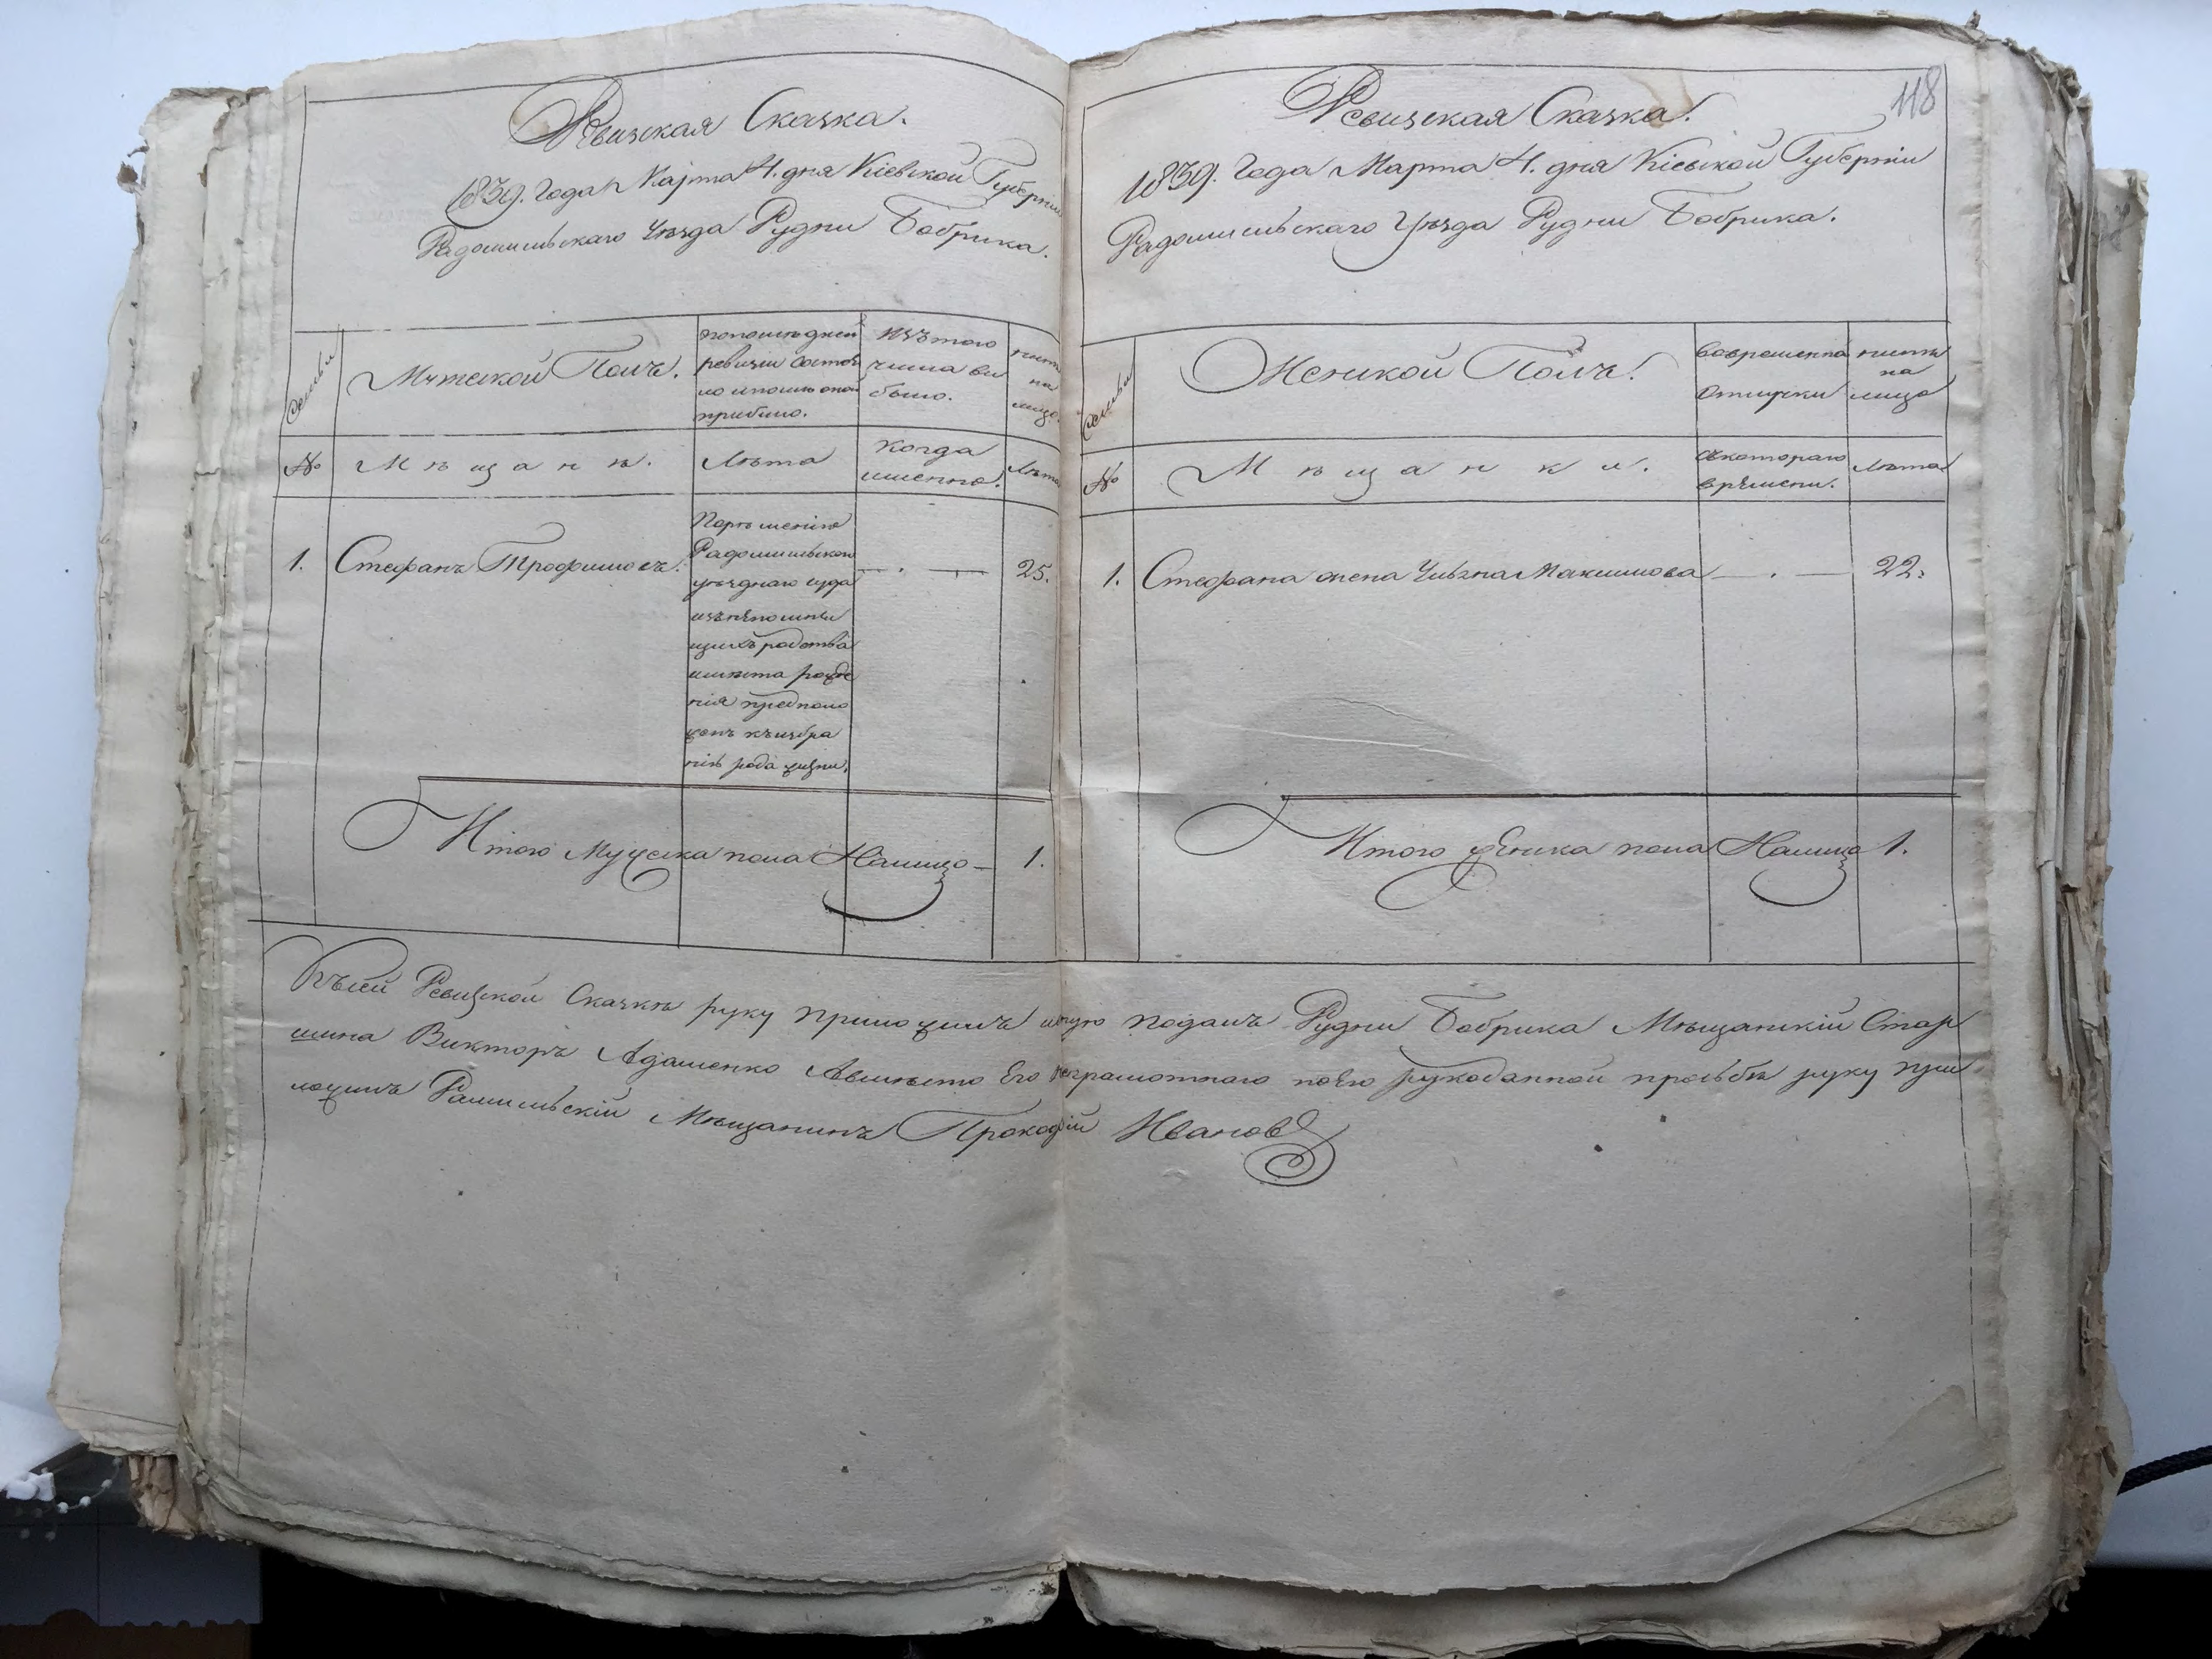 Ревизская Сказка.
1839. Года Марта 4. дня Кіевской Губерніи
Радомысльскаго Уѣзда Рудни Бобрика.
Семьи
Мужеской Полъ.
по последней
ревизіи состоя
ло и после оной
прибыло.
Изъ того
числа вы
было.
ныне
на
лицо.
№
Мѣщанѣ.
Лѣта
Когда
именно.
Лѣта
1.
Стефанъ Трофимовъ.
По рѣшенію
Радомысльскаго
уѣзднаго суда
изъ непомня
щихъ родства
и мѣста рожде
нія предполо
женъ къ избра
нію рода жизни.
25.
Итого Мужеска пола На лицо 1.
118
Ревизская Сказка.
1839. Года Марта 4. дня Кіевской Губерніи
Радомысльскаго Уѣзда Рудни Бобрика.
Семьи
Женской Полъ.
Во временно
Отлучки
ныне
на
лицо
№
Мѣщанки.
съ котораго
времени.
Лѣта
1.
Стефана жена Максимова
22.
Итого Женска пола На лицо 1.
Къ сей Ревизской Сказкѣ руку приложилъ и оную подалъ Рудни Бобрика Мѣщанскій Стар
шина Викторъ Адаменко А вместо Его неграмотнаго по Его рукоданной прозьбѣ руку при
ложилъ Мѣщанинъ Прокофій Ивановъ